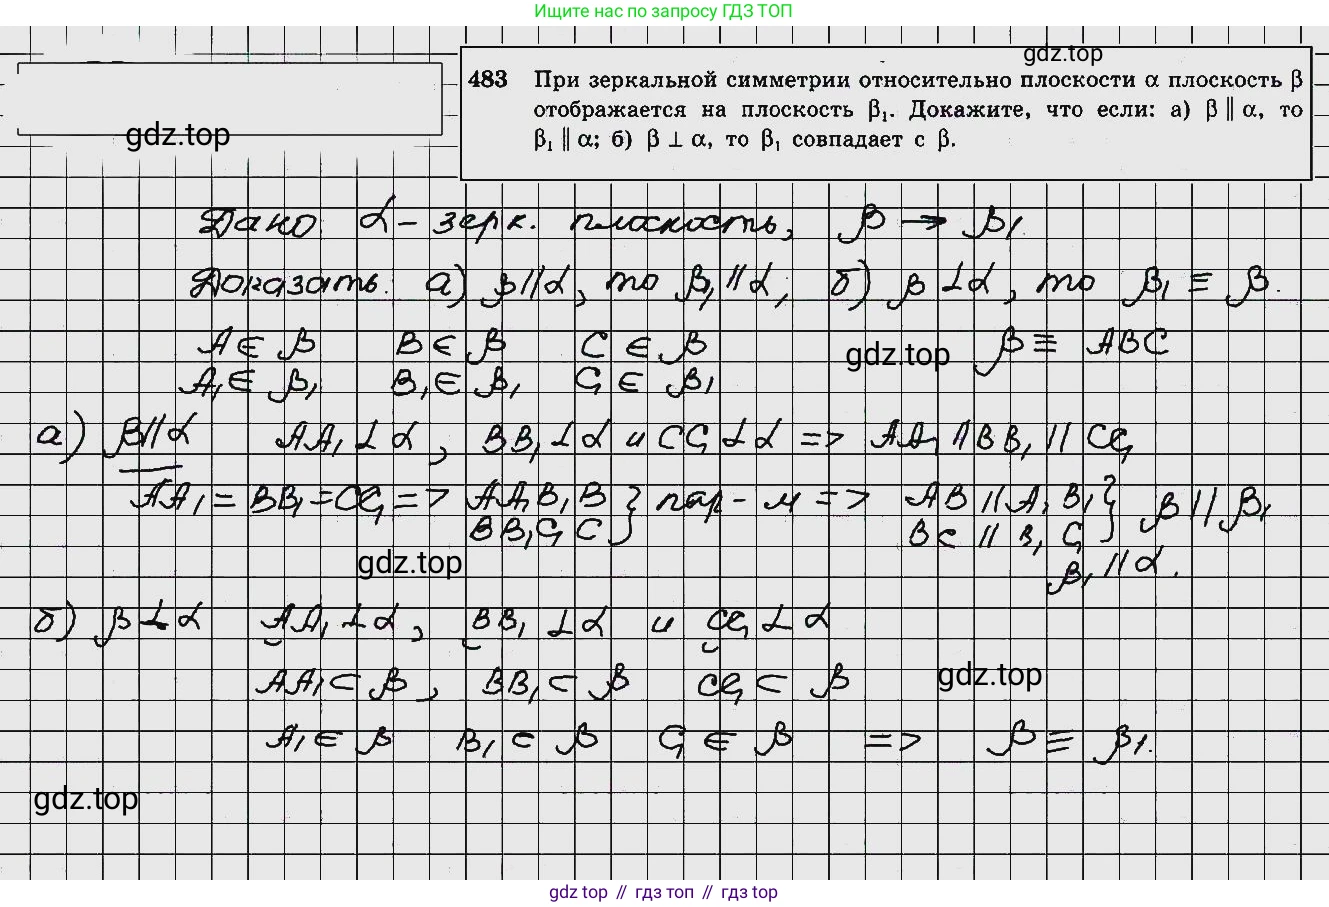 Ищите нас по запросу ГДЗ ТОП
gdz.top
483 При зеркальной симметрии относительно плоскости α плоскость β
отображается на плоскость β₁. Докажите, что если: а) β ∥ α, то
β₁ ∥ α; б) β ⊥ α, то β₁ совпадает с β.
gdz.top
Дано: α – зерк. плоскость, β → β₁
Доказать: а) β // α, то β₁ // α; б) β ⊥ α, то β₁ ≡ β.
A ∈ β B ∈ β C ∈ β gdz.top β ≡ ABC
A₁ ∈ β₁ B₁ ∈ β₁ C₁ ∈ β₁
а) β // α AA₁ ⊥ α, BB₁ ⊥ α и CC₁ ⊥ α => AA₁ // BB₁ // CC₁
AA₁ = BB₁ = CC₁ => AA₁B₁B } пар-м => AB // A₁B₁ } β // β₁
BB₁C₁C BC // B₁C₁
gdz.top β₁ // α.
б) β ⊥ α AA₁ ⊥ α, BB₁ ⊥ α и CC₁ ⊥ α
AA₁ ⊂ β, BB₁ ⊂ β CC₁ ⊂ β gdz.top
A₁ ∈ β B₁ ⊂ β C₁ ∈ β => β ≡ β₁.
gdz.top
gdz top // гдз топ // gdz top